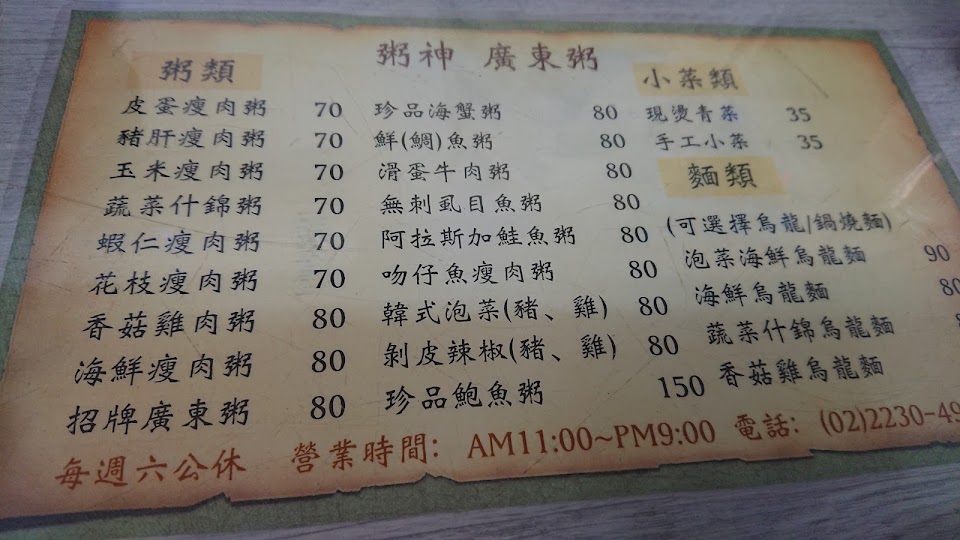 粥神 廣東粥
粥類
皮蛋瘦肉粥 70
豬肝瘦肉粥 70
玉米瘦肉粥 70
蔬菜什錦粥 70
蝦仁瘦肉粥 70
花枝瘦肉粥 70
香菇雞肉粥 80
海鮮瘦肉粥 80
招牌廣東粥 80
珍品海蟹粥 80
鮮(鯛)魚粥 80
滑蛋牛肉粥 80
無刺虱目魚粥 80
阿拉斯加鮭魚粥 80
吻仔魚瘦肉粥 80
韓式泡菜(豬、雞) 80
剝皮辣椒(豬、雞) 80
珍品鮑魚粥 150
小菜類
現燙青菜 35
手工小菜 35
麵類
(可選擇烏龍/鍋燒麵)
泡菜海鮮烏龍麵 90
海鮮烏龍麵 80
蔬菜什錦烏龍麵
香菇雞烏龍麵
每週六公休 營業時間: AM11:00~PM9:00 電話: (02)2230-49